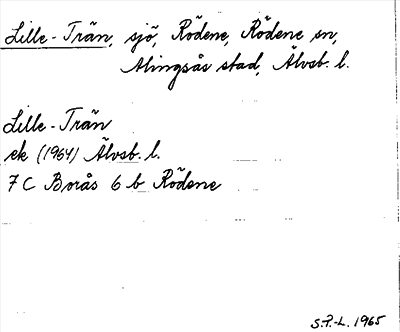 Lille-Trän, sjö, Rödene, Rödene sn,
Alingsås stad, Älvsb. l.
Lille-Trän
ek (1964) Älvsb. l.
7 C Borås 6 b Rödene
S.P.-L. 1965